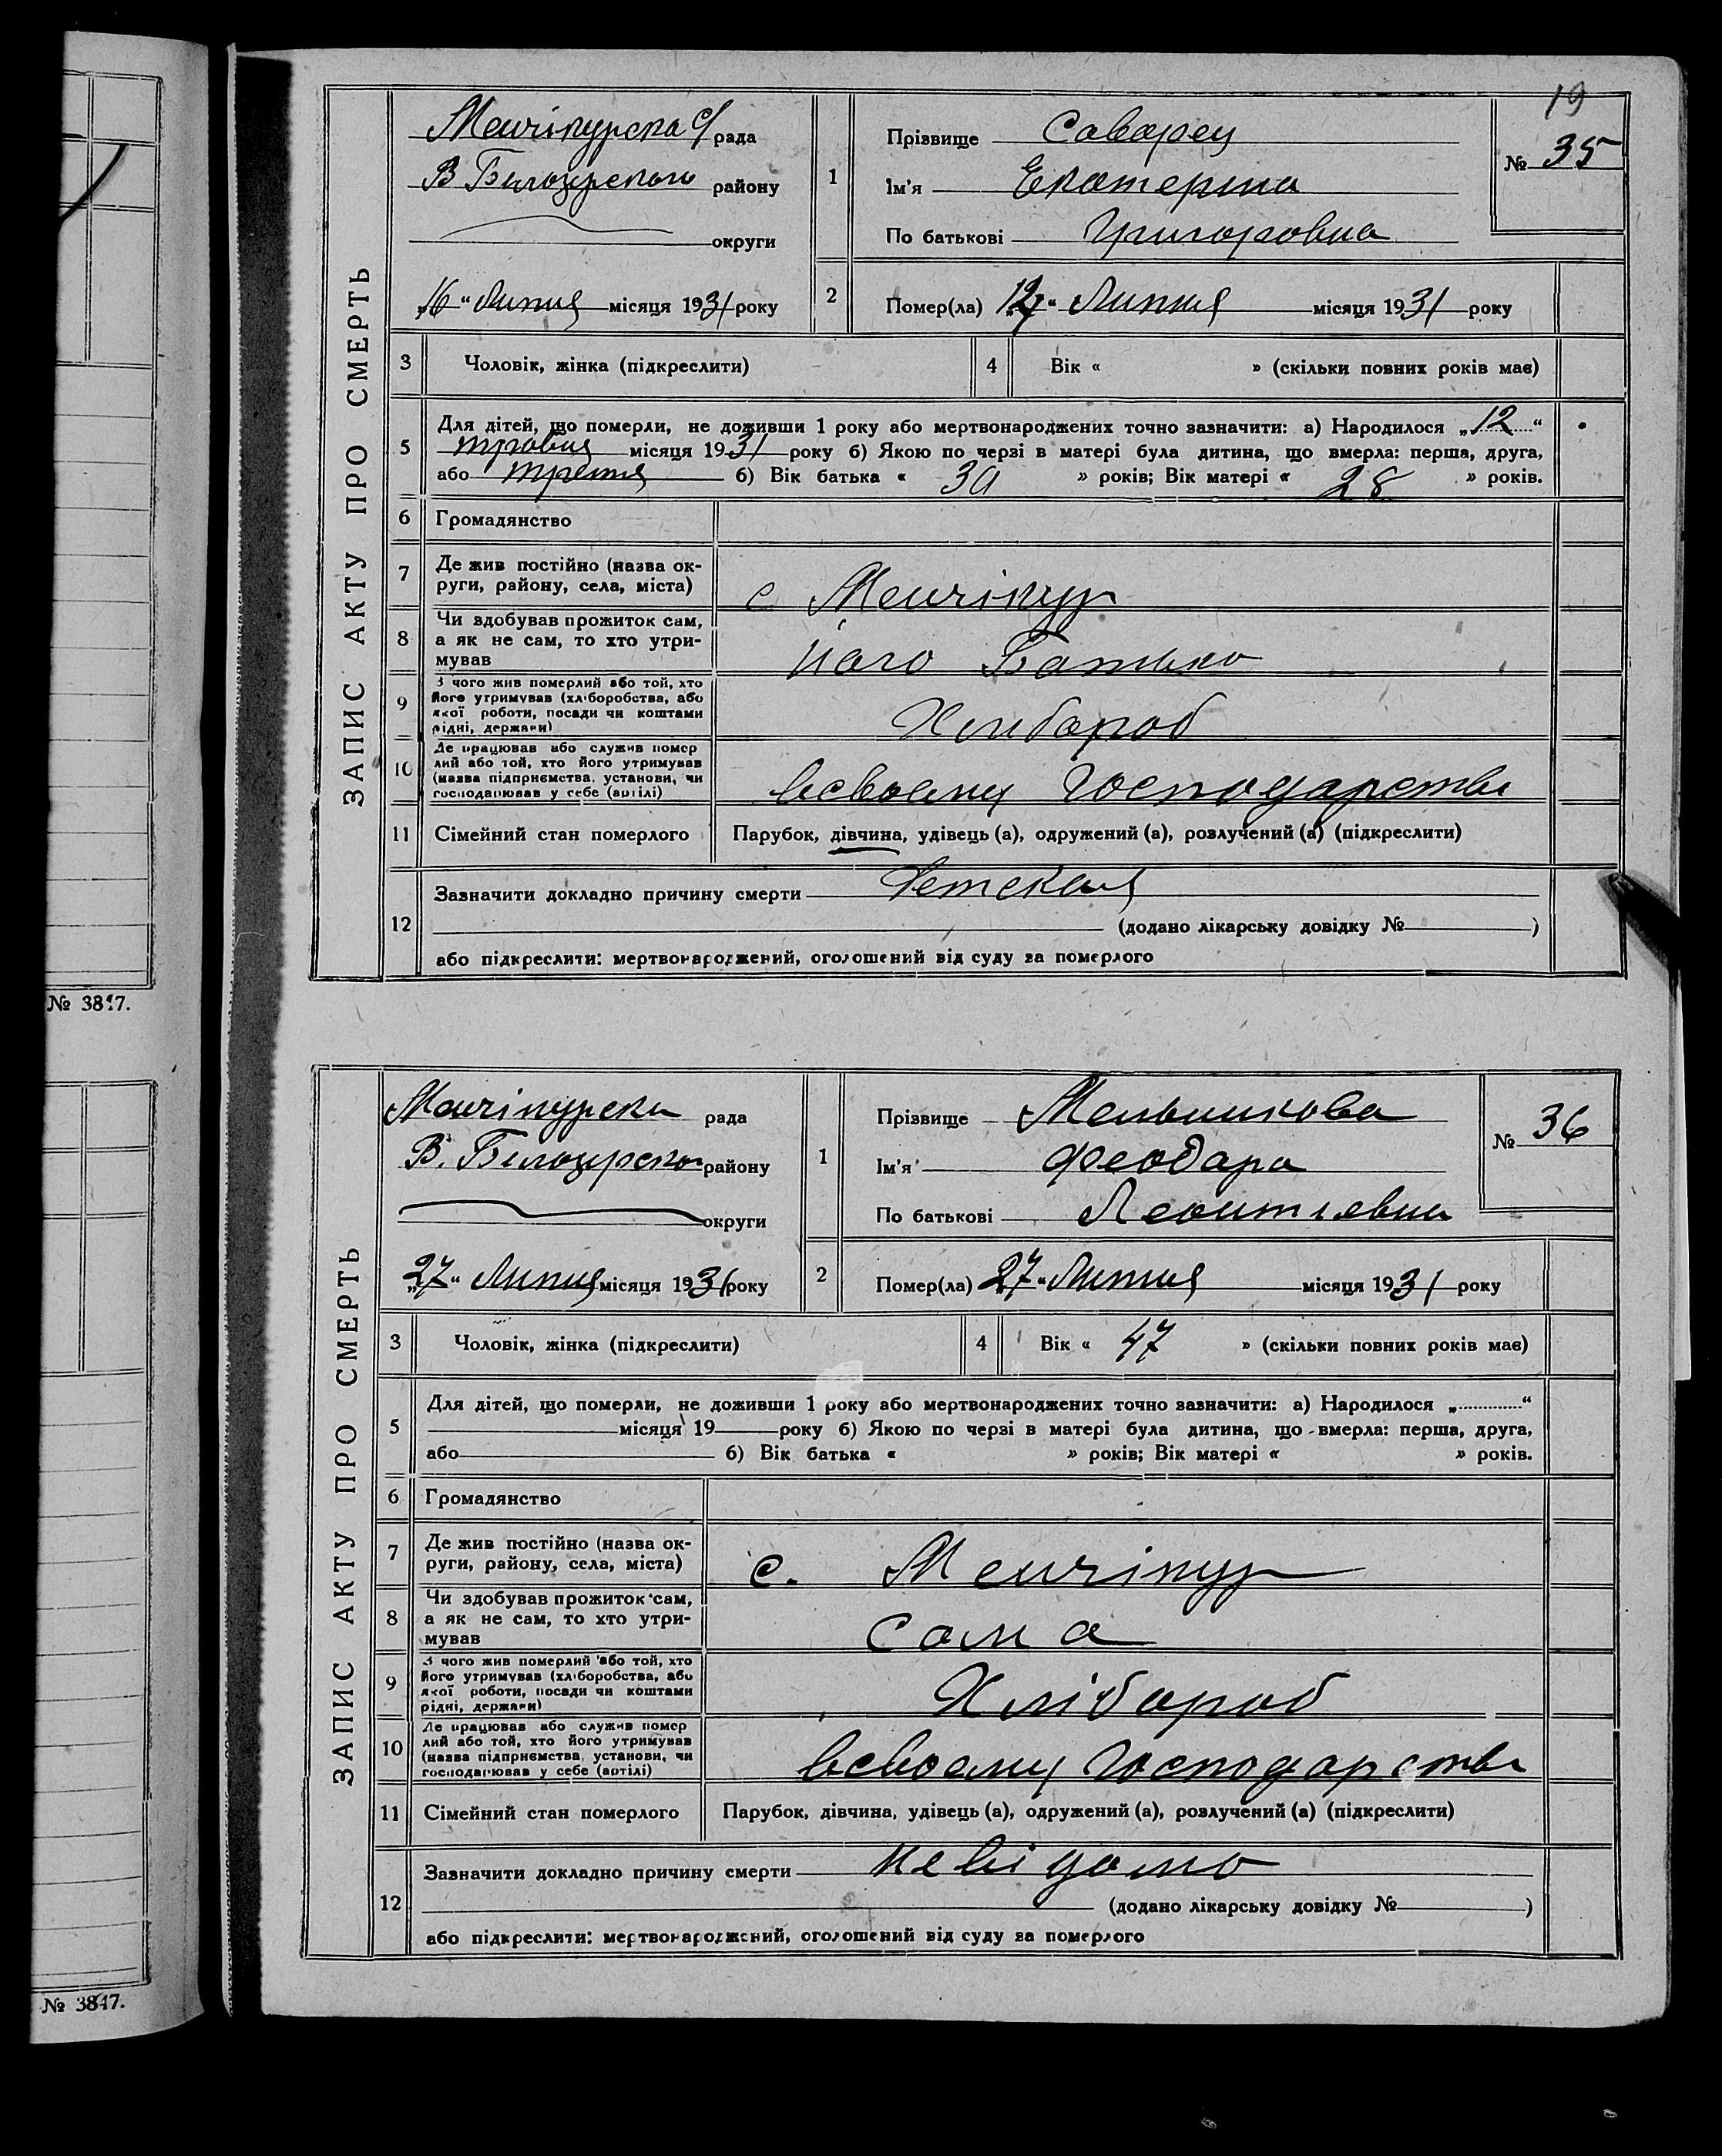 19
ЗАПИС АКТУ ПРО СМЕРТЬ
Менчікурска с/рада
В Билозерского району
округи
„16“ Липня місяця 1931 року
1
Прізвище
Ім'я Екатерина
По батькові Григоровна
№ 35
2
Помер(ла) Липня місяця 1931 року
3 Чоловік, жінка (підкреслити)
4 Вік « » (скільки повних років має)
5
Для дітей, що померли, не доживши 1 року або мертвонароджених точно зазначити: а) Народилося „12“
травня місяця 1931 року б) Якою по черзі в матері була дитина, що вмерла: перша, друга,
або третя б) Вік батька « 30 » років; Вік матері « 28 » років.
6 Громадянство
7
Де жив постійно (назва ок-
руги, району, села, міста)
с Менчікур
8
Чи здобував прожиток сам,
а як не сам, то хто утри-
мував
його Батько
9
З чого жив померлий або той, хто
його утримував (хліборобства, або
якої роботи, посади чи коштами
рідні, держави)
Хлибороб
10
Де працював або служив помер
лий або той, хто його утримував
(назва підприємства, установи, чи
господарював у себе (артілі)
всвоему Господарстві
11 Сімейний стан померлого Парубок, дівчина, удівець (а), одружений (а), розлучений (а) (підкреслити)
12
Зазначити докладно причину смерти Детская
(додано лікарську довідку № )
або підкреслити: мертвонароджений, оголошений від суду за померлого
№ 3817.
ЗАПИС АКТУ ПРО СМЕРТЬ
Менчікурска рада
В. Билозерского району
округи
„27“ Липня місяця 1931 року
1
Прізвище Мельникова
Ім'я Феодора
По батькові Леонтіевна
№ 36
2
Помер(ла) 27“ Липня місяця 1931 року
3 Чоловік, жінка (підкреслити)
4 Вік « 47 » (скільки повних років має)
5
Для дітей, що померли, не доживши 1 року або мертвонароджених точно зазначити: а) Народилося „ “
місяця 19 року б) Якою по черзі в матері була дитина, що вмерла: перша, друга,
або б) Вік батька « » років; Вік матері « » років.
6 Громадянство
7
Де жив постійно (назва ок-
руги, району, села, міста)
с. Менчікур
8
Чи здобував прожиток сам,
а як не сам, то хто утри-
мував
сама
9
З чого жив померлий або той, хто
його утримував (хліборобства, або
якої роботи, посади чи коштами
рідні, держави)
Хлібороб
10
Де працював або служив помер
лий або той, хто його утримував
(назва підприємства, установи, чи
господарював у себе (артілі)
всвоему Господарстві
11 Сімейний стан померлого Парубок, дівчина, удівець (а), одружений (а), розлучений (а) (підкреслити)
12
Зазначити докладно причину смерти невідомо
(додано лікарську довідку № )
або підкреслити: мертвонароджений, оголошений від суду за померлого
№ 3817.